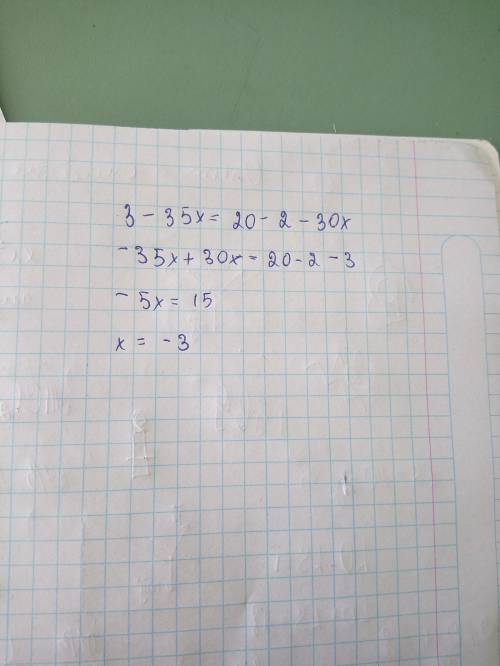 3 - 35x = 20 - 2 - 30x
-35x + 30x = 20 - 2 - 3
-5x = 15
x = -3